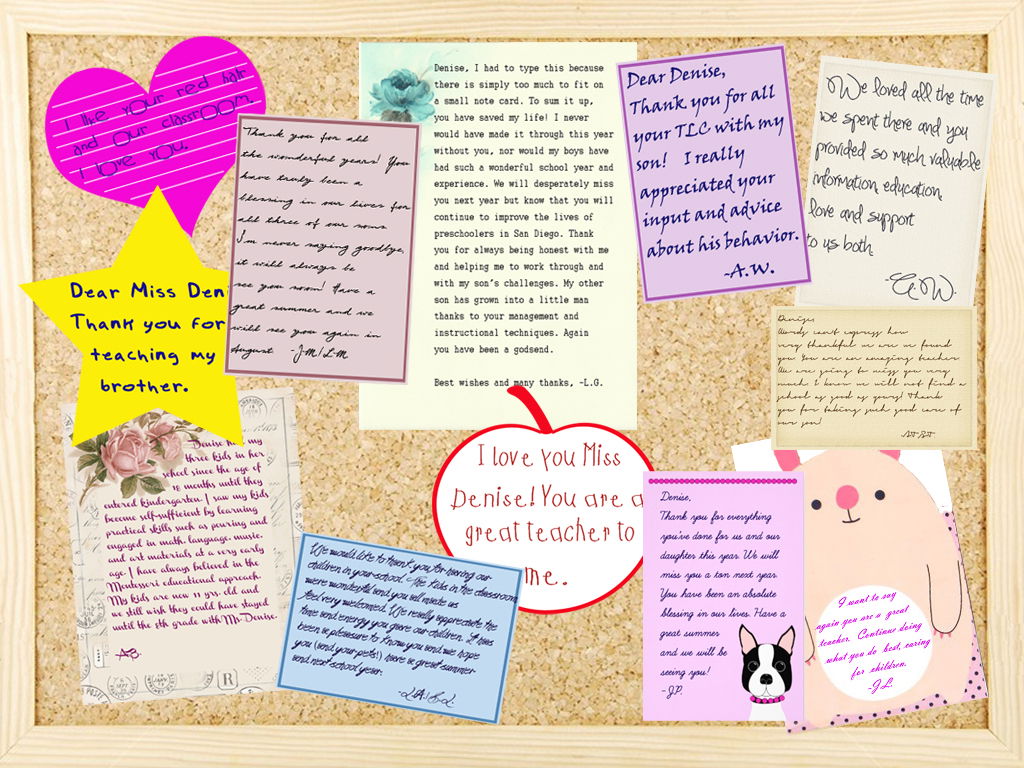 I like your red hair
and our classroom.
I love you.
Dear Miss Deni
Thank you for
teaching my
brother.
Thank you for all
the wonderful years! You
have truly been a
blessing in our lives for
all three of our sons
I'm never saying goodbye,
it will always be
see you soon! Have a
great summer and we
will see you again in
August -J-M/L-M
Denise, I had to type this because
there is simply too much to fit on
a small note card. To sum it up,
you have saved my life! I never
would have made it through this year
without you, nor would my boys have
had such a wonderful school year and
experience. We will desperately miss
you next year but know that you will
continue to improve the lives of
preschoolers in San Diego. Thank
you for always being honest with me
and helping me to work through and
with my son's challenges. My other
son has grown into a little man
thanks to your management and
instructional techniques. Again
you have been a godsend.
Best wishes and many thanks, -L.G.
Dear Denise,
Thank you for all
your TLC with my
son! I really
appreciated your
input and advice
about his behavior.
-A.W.
We loved all the time
we spent there and you
provided so much valuable
information, education,
love and support
to us both.
Denise,
Words can't express how
very thankful we are we found
you. You are an amazing teacher.
We are going to miss you very
much. I know we will not find a
school as good as yours! Thank
you for taking such good care of
our son!
Denise h my
three kids in her
school since the age of
18 months until they
entered kindergarten. I saw my kids
become self-sufficient by learning
practical skills such as pouring and
engaged in math, language, music,
and art materials at a very early
age. I have always believed in the
Montessori educational approach.
My kids are now 11 yrs. old and
we still wish they could have stayed
until the 5th grade with Ms Denise.
I love you Miss
Denise! You are a
great teacher to
me.
We would like to thank you for having our
children in your school. The kids in the classroom
were wonderful and you all made us
feel very welcomed. We really appreciate the
time and energy you gave our children. It has
been a pleasure to know you and we hope
you (and your pets!) have a great summer
and next school year.
Denise,
Thank you for everything
you've done for us and our
daughter this year. We will
miss you a ton next year.
You have been an absolute
blessing in our lives. Have a
great summer
and we will be
seeing you!
-J.P.
I want to say
again you are a great
teacher. Continue doing
what you do best, caring
for children.
-J.L.